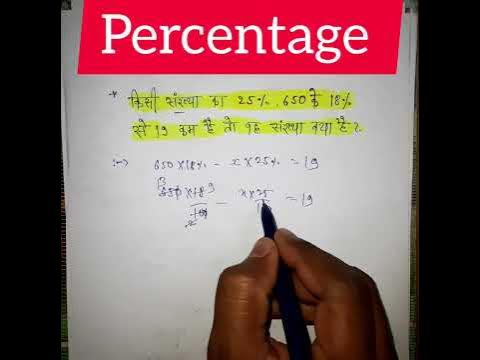 Percentage
* किसी संख्या का 25%, 650 के 18%
से 19 कम है तो वह संख्या क्या है?
:→) 650×18% - x×25% = 19
13
650×18 9 - x×25 = 19
100
2